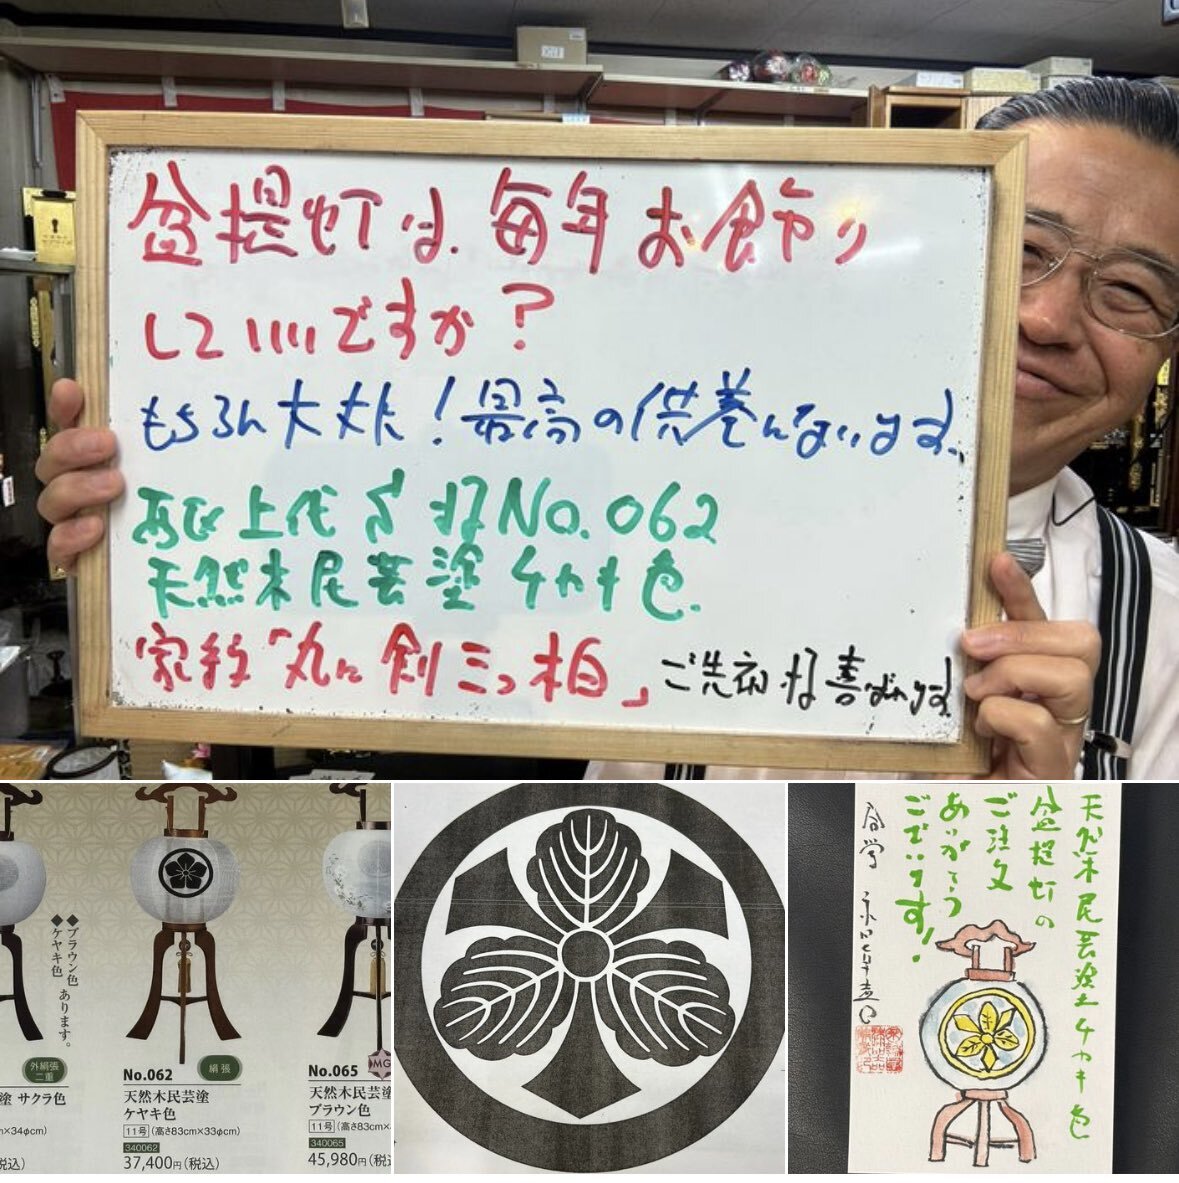 盆提灯は、毎年お飾り
していいですか?
もちろん大丈夫!最高の供養になります。
No.062
天然木民芸塗ケヤキ色
家紋「丸に剣三つ柏」ご先祖様喜ばれます。
◆ブラウン色
◆ケヤキ色 あります。
外絹張
二重
塗 サクラ色
m×34φcm)
税込)
No.062
絹張
天然木民芸塗
ケヤキ色
11号 (高さ83cm×33φcm)
340062
37,400円(税込)
No.065
MG
天然木民芸塗
ブラウン色
11号 (高さ83cm×
340065
45,980円(税込
天然木民芸塗ケヤキ色
盆提灯の
ご注文
ありがとう
ございます!
合掌